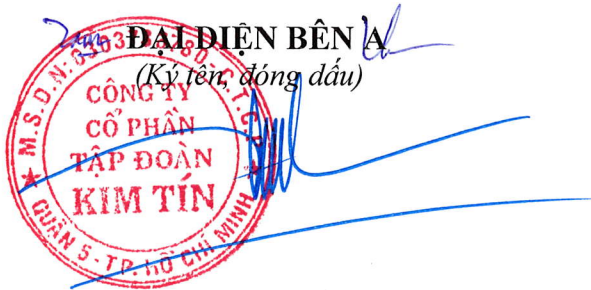 ĐẠI DIỆN BÊN A
(Ký tên, đóng dấu)
CÔNG TY
CỔ PHẦN
TẬP ĐOÀN
KIM TÍN
QUẬN 5 - T.P. HỒ CHÍ MINH